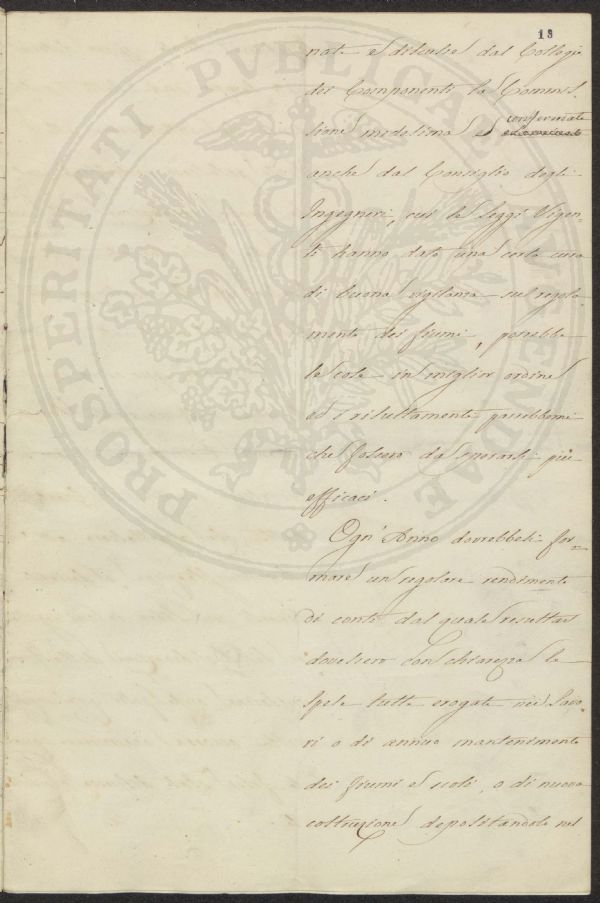 13
nate e discusse dal Collegio
dei Componenti la Commis
sione medesima ed confermate
anche dal Consiglio degli
Ingegneri, cui le Leggi Vigen-
ti hanno dato una certa cura
di buona vigilanza sul regola
mento dei fiumi, porrebbe
le cose in miglior ordine
ed i risultamenti parrebbemi
che fossero da sperarsi più
efficaci.
Ogn' Anno dovrebbesi for-
mare un regolare rendimento
di conti dal quale resultar
dovessero con chiarezza le
spese tutte erogate nei Lavo
ri o di annuo mantenimento
dei fiumi e scoli, o di nuova
costruzione depositandole nel
PROSPERITATI PVBLICAE AVGENDAE